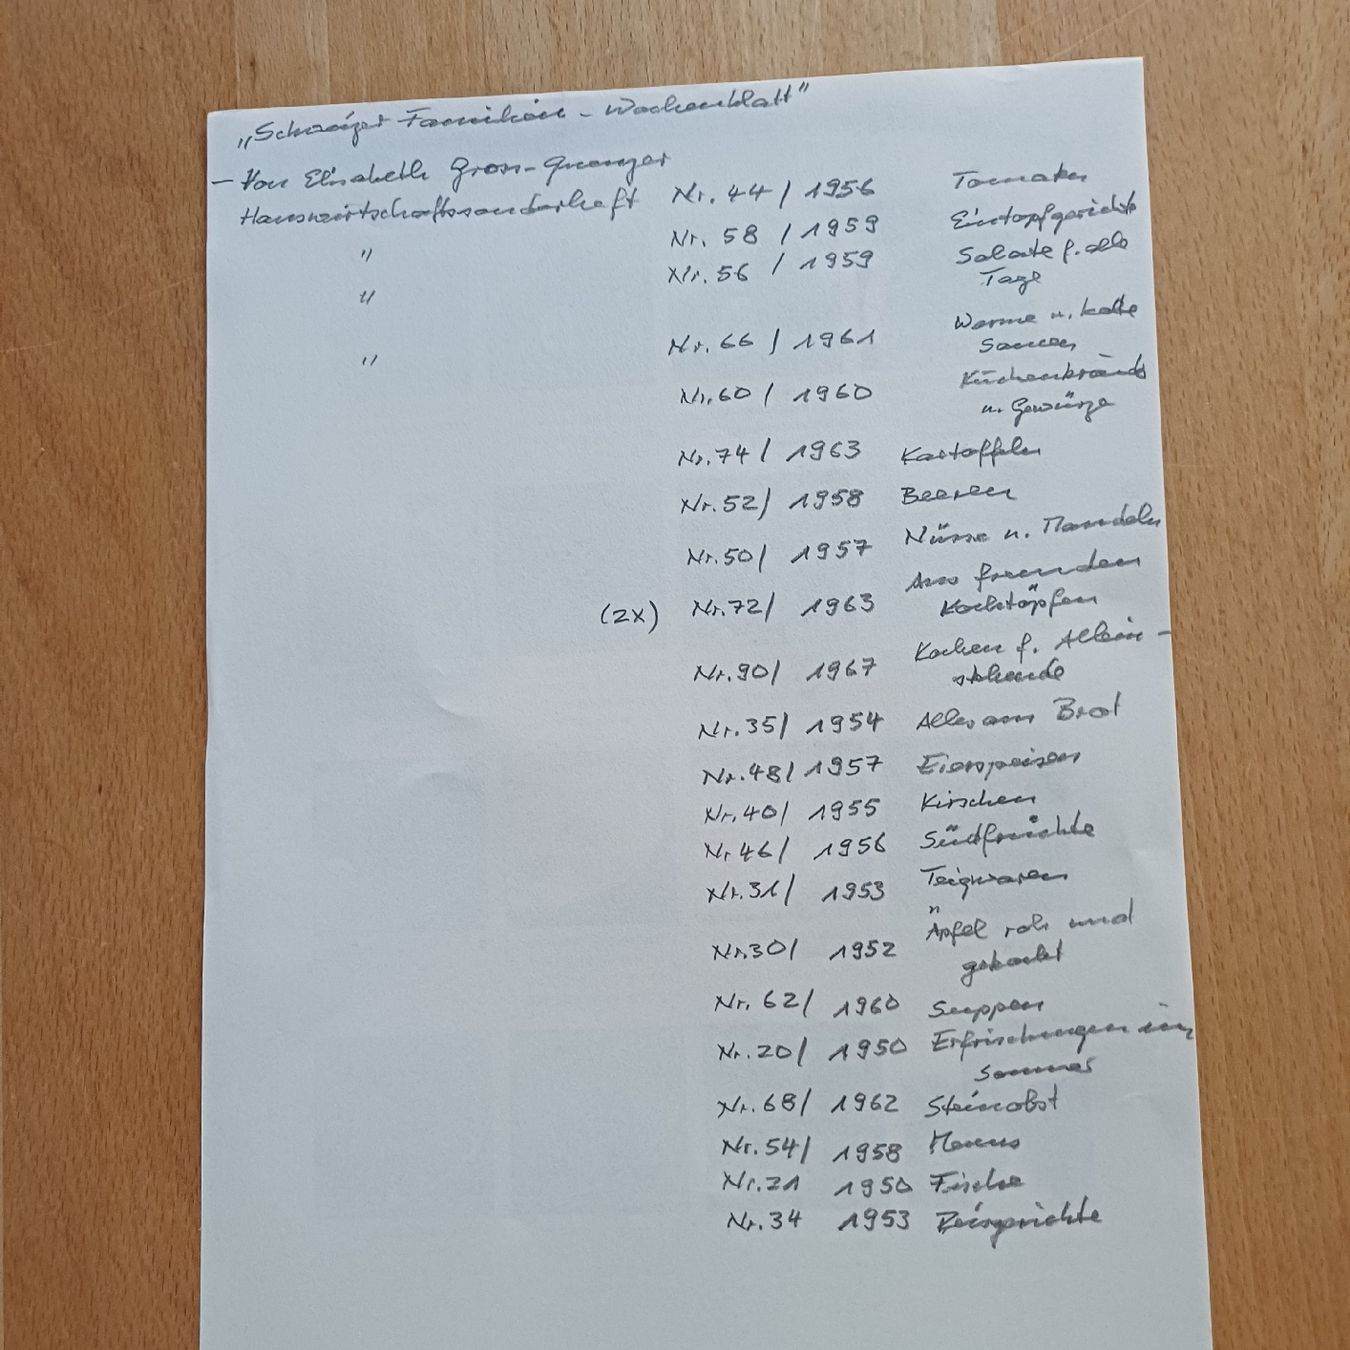 „Schweizer Familien-Wochenblatt"
- Von Elisabeth Gross-Quenzer
Hauswirtschaftssonderheft Nr. 44 / 1956 Tomaten
" Nr. 58 / 1959 Eintopfgerichte
" Nr. 56 / 1959 Salate f. alle
Tage
" Nr. 66 / 1961 Warme u. kalte
Saucen
Nr. 60 / 1960 Küchenkräuter
u. Gewürze
Nr. 74 / 1963 Kartoffeln
Nr. 52 / 1958 Beeren
Nr. 50 / 1957 Nüsse u. Mandeln
(2x) Nr. 72 / 1963 Aus fremden
Kochtöpfen
Nr. 90 / 1967 Kochen f. Allein-
stehende
Nr. 35 / 1954 Alles am Brot
Nr. 48 / 1957 Eierspeisen
Nr. 40 / 1955 Kirschen
Nr 46 / 1956 Südfrüchte
Nr. 31 / 1953 Teigwaren
Nr. 30 / 1952 Äpfel roh und
gekocht
Nr. 62 / 1960 Suppen
Nr. 20 / 1950 Erfrischungen im
Sommer
Nr. 68 / 1962 Steinobst
Nr. 54 / 1958 Menus
Nr. 21 1950 Fische
Nr. 34 1953 Reisgerichte